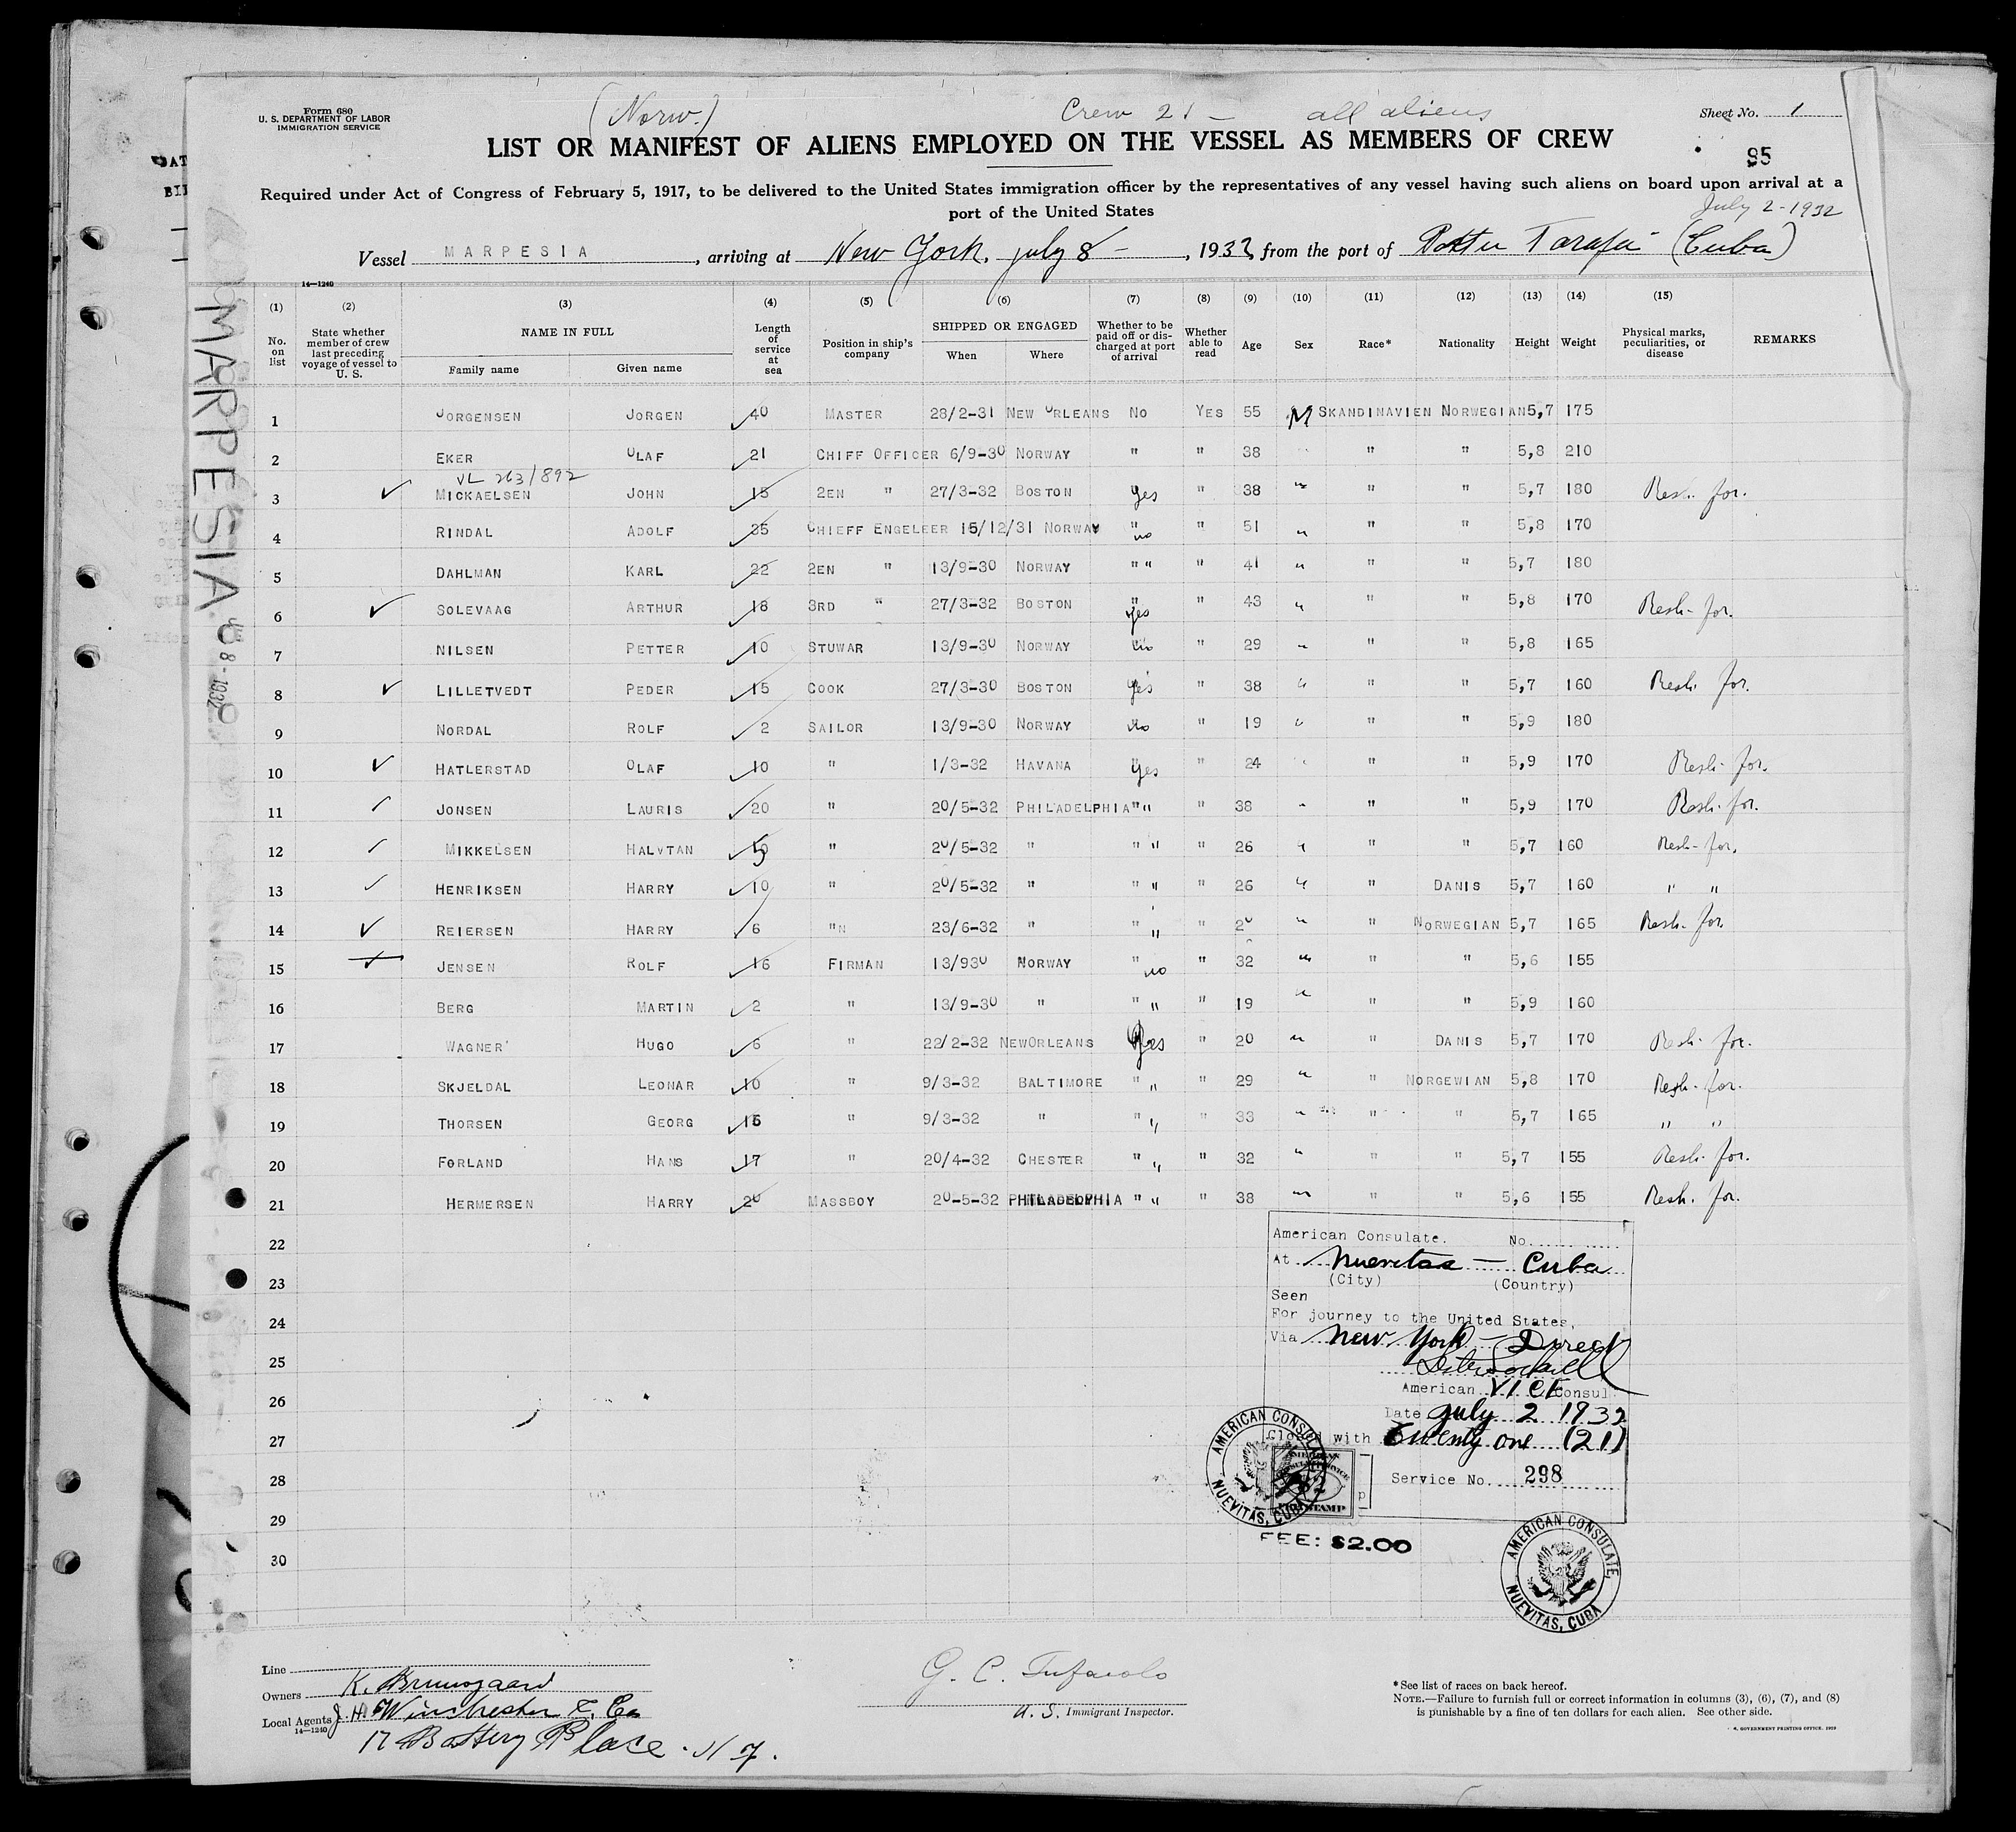 Form 680
U. S. DEPARTMENT OF LABOR
IMMIGRATION SERVICE
(Norw.)
Crew 21 — all aliens
Sheet No. 1
LIST OR MANIFEST OF ALIENS EMPLOYED ON THE VESSEL AS MEMBERS OF CREW
95
Required under Act of Congress of February 5, 1917, to be delivered to the United States immigration officer by the representatives of any vessel having such aliens on board upon arrival at a
port of the United States
July 2-1932
Vessel MARPESIA, arriving at New York, july 8 —, 1932 from the port of Tarafa (Cuba)
14—1240
(1) (2) (3) (4) (5) (6) (7) (8) (9) (10) (11) (12) (13) (14) (15)
No. on list
State whether member of crew last preceding voyage of vessel to U. S.
NAME IN FULL
Family name Given name
Length of service at sea
Position in ship's company
SHIPPED OR ENGAGED
When Where
Whether to be paid off or discharged at port of arrival
Whether able to read
Age Sex Race* Nationality Height Weight
Physical marks, peculiarities, or disease
REMARKS
1 JORGENSEN JORGEN 40 MASTER 28/2-31 NEW ORLEANS NO YES 55 M SKANDINAVIEN NORWEGIAN 5,7 175
2 EKER OLAF 21 CHIFF OFFICER 6/9-30 NORWAY " " 38 " " 5,8 210
VL 263/892
3 ✓ MICKAELSEN JOHN 15 2EN " 27/3-32 BOSTON yes " 38 " " " 5,7 180 Resh. for.
4 RINDAL ADOLF 35 CHIEFF ENGELEER 15/12/31 NORWAY " no " 51 " " " 5,8 170
5 DAHLMAN KARL 22 2EN " 13/9-30 NORWAY " " " 41 " " " 5,7 180
6 ✓ SOLEVAAG ARTHUR 18 3RD " 27/3-32 BOSTON " yes " 43 " " " 5,8 170 Resh. for.
7 NILSEN PETTER 10 STUWAR 13/9-30 NORWAY no " 29 " " " 5,8 165
8 ✓ LILLETVEDT PEDER 15 COOK 27/3-30 BOSTON yes " 38 " " " 5,7 160 Resh. for.
9 NORDAL ROLF 2 SAILOR 13/9-30 NORWAY no " 19 " " " 5,9 180
10 ✓ HATLERSTAD OLAF 10 " 1/3-32 HAVANA yes " 24 " " " 5,9 170 Resh. for.
11 ✓ JONSEN LAURIS 20 " 20/5-32 PHILADELPHIA " " " 38 " " " 5,9 170 Resh. for.
12 ✓ MIKKELSEN HALVTAN " 20/5-32 " " " " 26 " " " 5,7 160 Resh. for.
13 ✓ HENRIKSEN HARRY 10 " 20/5-32 " " " " 26 " " DANIS 5,7 160 " "
14 ✓ REIERSEN HARRY 6 "N 23/6-32 " " " " 20 " " NORWEGIAN 5,7 165 Resh. for.
15 JENSEN ROLF 16 FIRMAN 13/930 NORWAY " no " 32 " " " 5,6 155
16 BERG MARTIN 2 " 13/9-30 " " " " 19 " " " 5,9 160
17 WAGNER HUGO 6 " 22/2-32 NEWORLEANS Yes " 20 " " DANIS 5,7 170 Resh. for.
18 SKJELDAL LEONAR 10 " 9/3-32 BALTIMORE " " " 29 " " NORGEWIAN 5,8 170 Resh. for.
19 THORSEN GEORG 15 " 9/3-32 " " " 33 " " " 5,7 165 " "
20 FORLAND HANS 17 " 20/4-32 CHESTER " " " 32 " " " 5,7 155 Resh. for.
21 HERMERSEN HARRY 20 MASSBOY 20-5-32 PHILADELPHIA " " " 38 " " " 5,6 155 Resh. for.
22
23
24
25
26
27
28
29
30
MARPESIA
8-1932
American Consulate. No.
At Nuevitas — Cuba
(City) (Country)
Seen
For journey to the United States,
Via New York — Direct
American VICE Consul
Date July 2 1932
Closed with Twenty one (21)
Service No. 298
AMERICAN CONSULATE
NUEVITAS, CUBA
FEE: $2.00
AMERICAN CONSULATE,
NUEVITAS, CUBA
Line
Owners K. Bruusgaard
Local Agents J. H. Winchester & Co
14—1240
17 Battery Place. N Y.
G. C. Tufarolo
U. S. Immigrant Inspector.
*See list of races on back hereof.
NOTE.—Failure to furnish full or correct information in columns (3), (6), (7), and (8)
is punishable by a fine of ten dollars for each alien. See other side.
U. S. GOVERNMENT PRINTING OFFICE